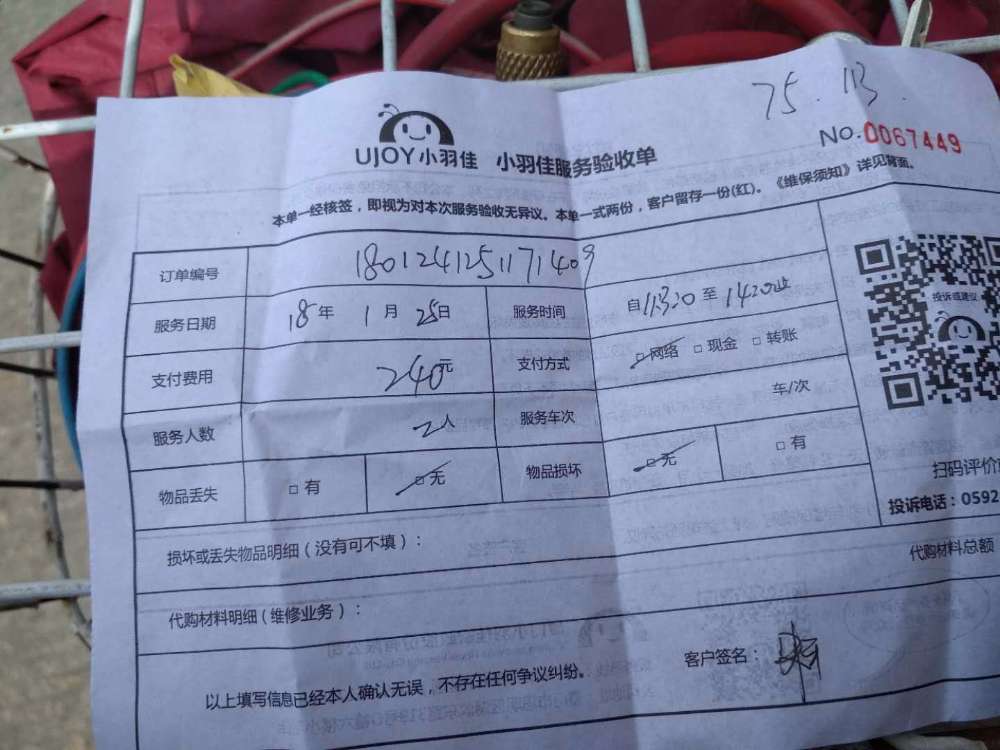 75.113.
UJOY小羽佳 小羽佳服务验收单
No.0067449
本单一经核签，即视为对本次服务验收无异议。本单一式两份，客户留存一份(红)。《维保须知》详见背面。
订单编号 1801241251171409
服务日期 18年 1月 25日 服务时间 自11320 至 1420
支付费用 240元 支付方式 □网络 □现金 □转账
服务人数 2人 服务车次 车/次
物品丢失 □有 □无 物品损坏 □无 □有
投诉或建议
扫码评价
投诉电话：0592
损坏或丢失物品明细（没有可不填）：
代购材料总额
代购材料明细（维修业务）：
以上填写信息已经本人确认无误，不存在任何争议纠纷。
客户签名：